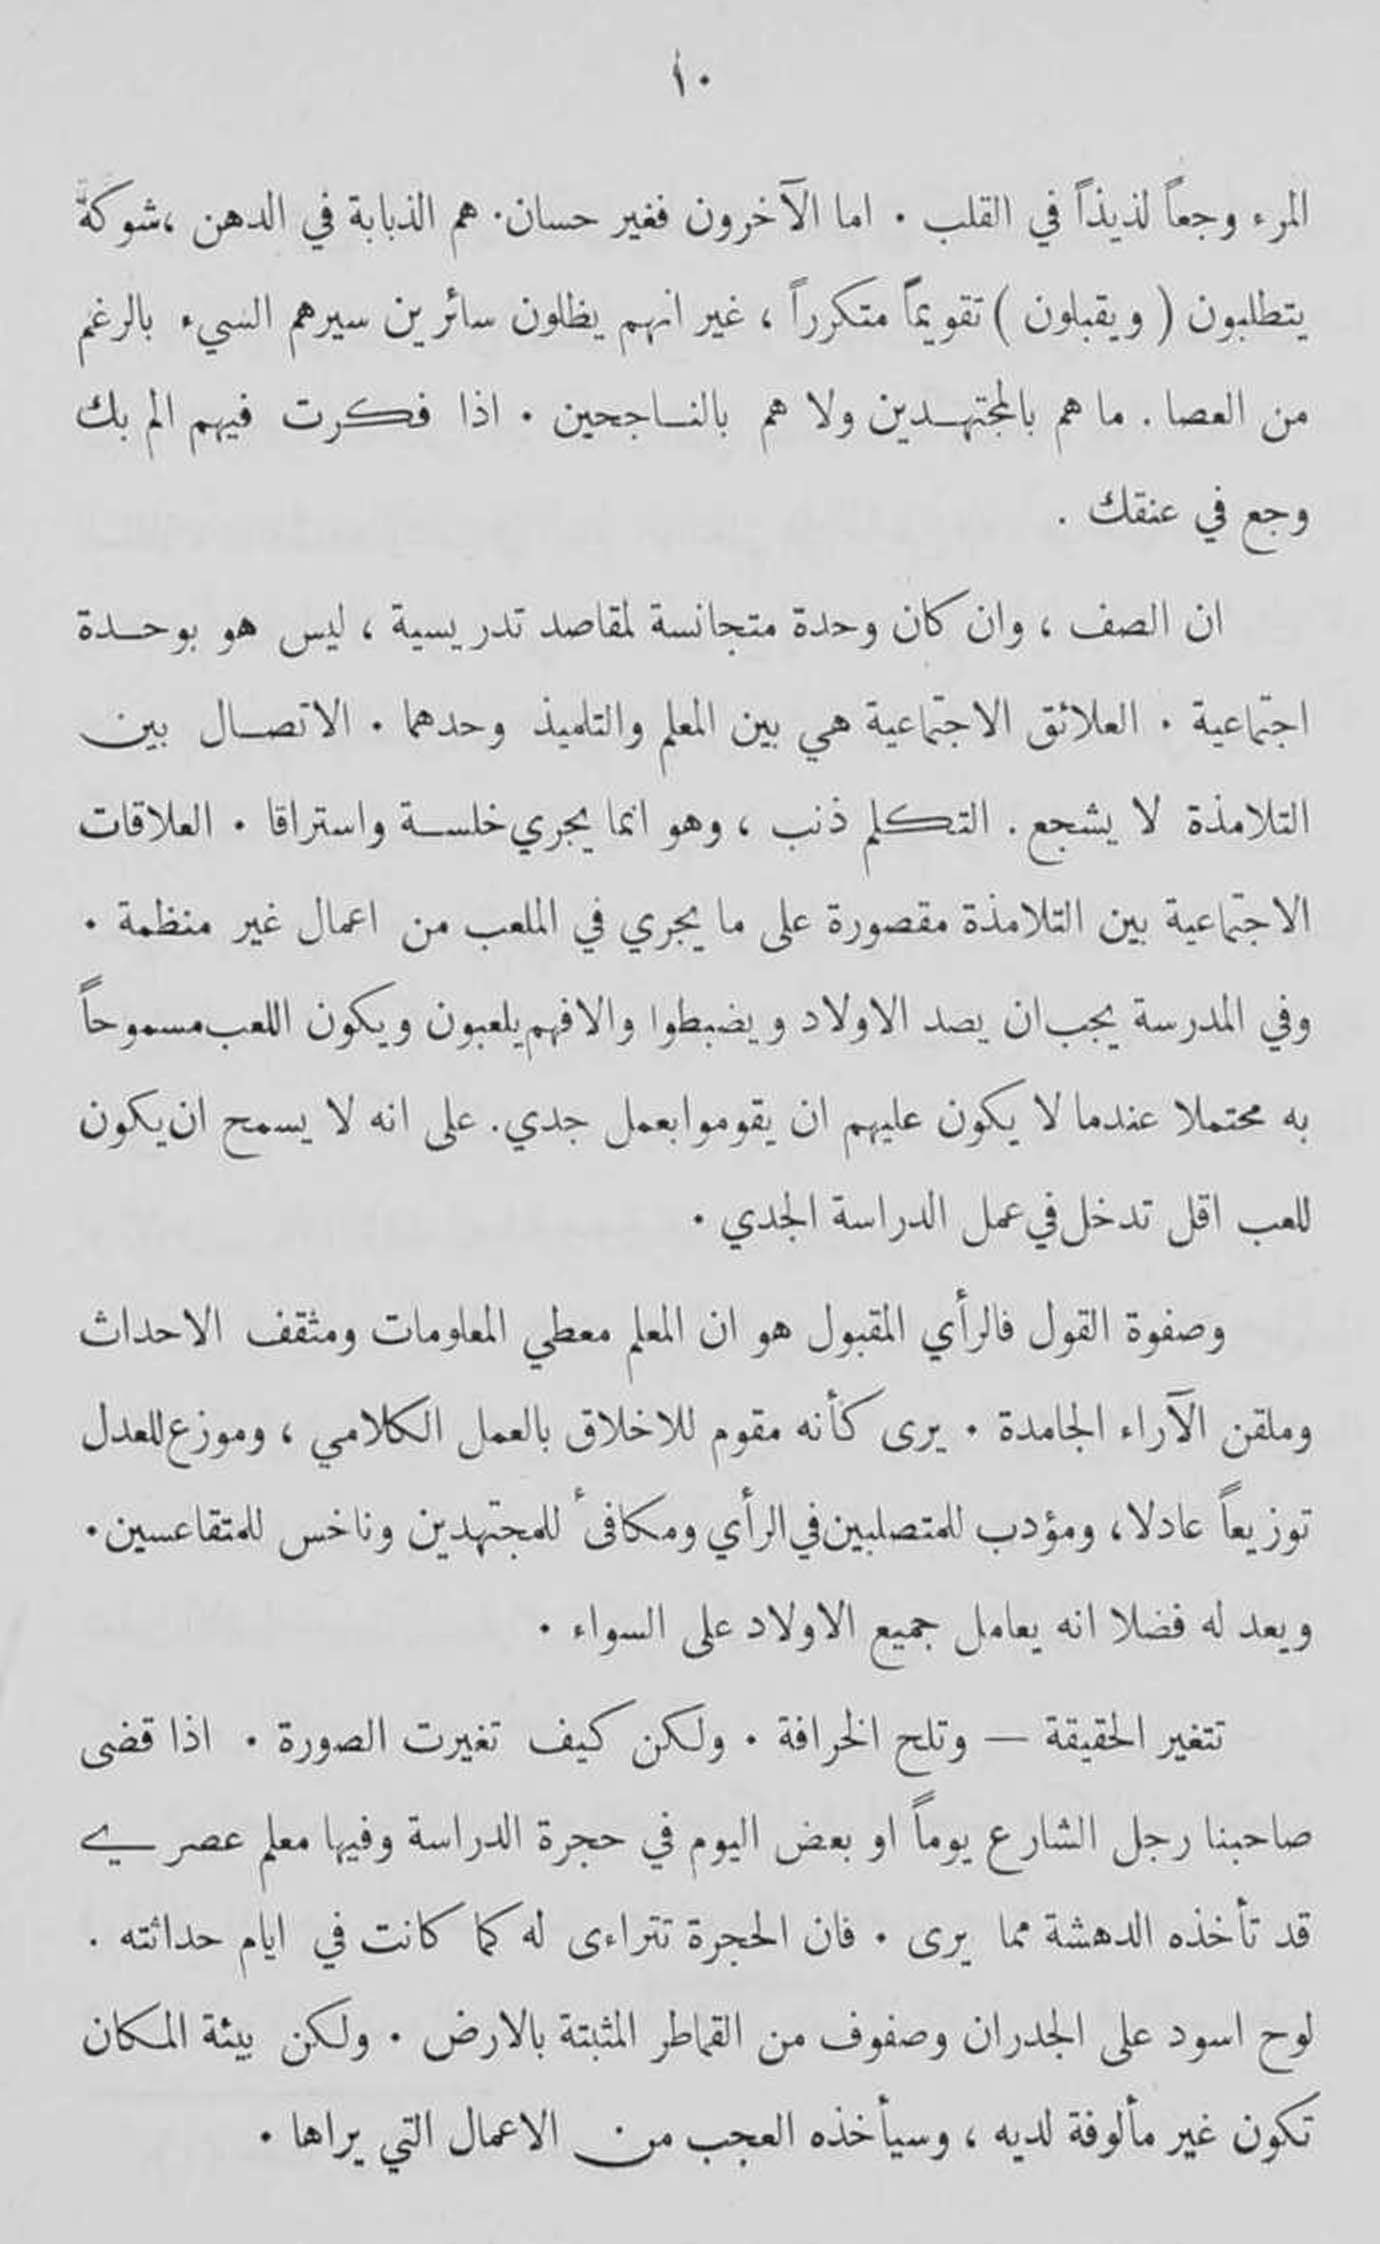 ١٠
المرء وجعاً لذيذاً في القلب . اما الآخرون فغير حسان . هم الذبابة في الدهن ، شوكة
يتطلبون ( ويقبلون ) تقويماً متكرراً ، غير انهم يظلون سائرين سيرهم السيء بالرغم
من العصا . ما هم بالمجتهدين ولا هم بالناجحين . اذا فكرت فيهم الم بك
وجع في عنقك .
ان الصف ، وان كان وحدة متجانسة لمقاصد تدريسية ، ليس هو بوحدة
اجتماعية . العلائق الاجتماعية هي بين المعلم والتلميذ وحدهما . الاتصال بين
التلامذة لا يشجع . التكلم ذنب ، وهو انما يجري خلسة واستراقا . العلاقات
الاجتماعية بين التلامذة مقصورة على ما يجري في الملعب من اعمال غير منظمة .
وفي المدرسة يجب ان يصد الاولاد ويضبطوا والا فهم يلعبون ويكون اللعب مسموحاً
به محتملا عندما لا يكون عليهم ان يقوموا بعمل جدي . على انه لا يسمح ان يكون
للعب اقل تدخل في عمل الدراسة الجدي .
وصفوة القول فالرأي المقبول هو ان المعلم معطي المعلومات ومثقف الاحداث
وملقن الآراء الجامدة . يرى كأنه مقوم للاخلاق بالعمل الكلامي ، وموزع للعدل
توزيعاً عادلا ، ومؤدب للمتصلبين في الرأي ومكافئ للمجتهدين وناخس للمتقاعسين .
ويعد له فضلا انه يعامل جميع الاولاد على السواء .
تتغير الحقيقة — وتلح الخرافة . ولكن كيف تغيرت الصورة . اذا قضى
صاحبنا رجل الشارع يوماً او بعض اليوم في حجرة الدراسة وفيها معلم عصري
قد تأخذه الدهشة مما يرى . فان الحجرة تتراءى له كما كانت في ايام حداثته .
لوح اسود على الجدران وصفوف من القماطر المثبتة بالارض . ولكن بيئة المكان
تكون غير مألوفة لديه ، وسيأخذه العجب من الاعمال التي يراها .